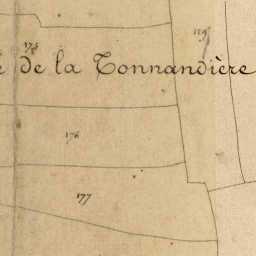 175
é de la Tonnandière
176
177